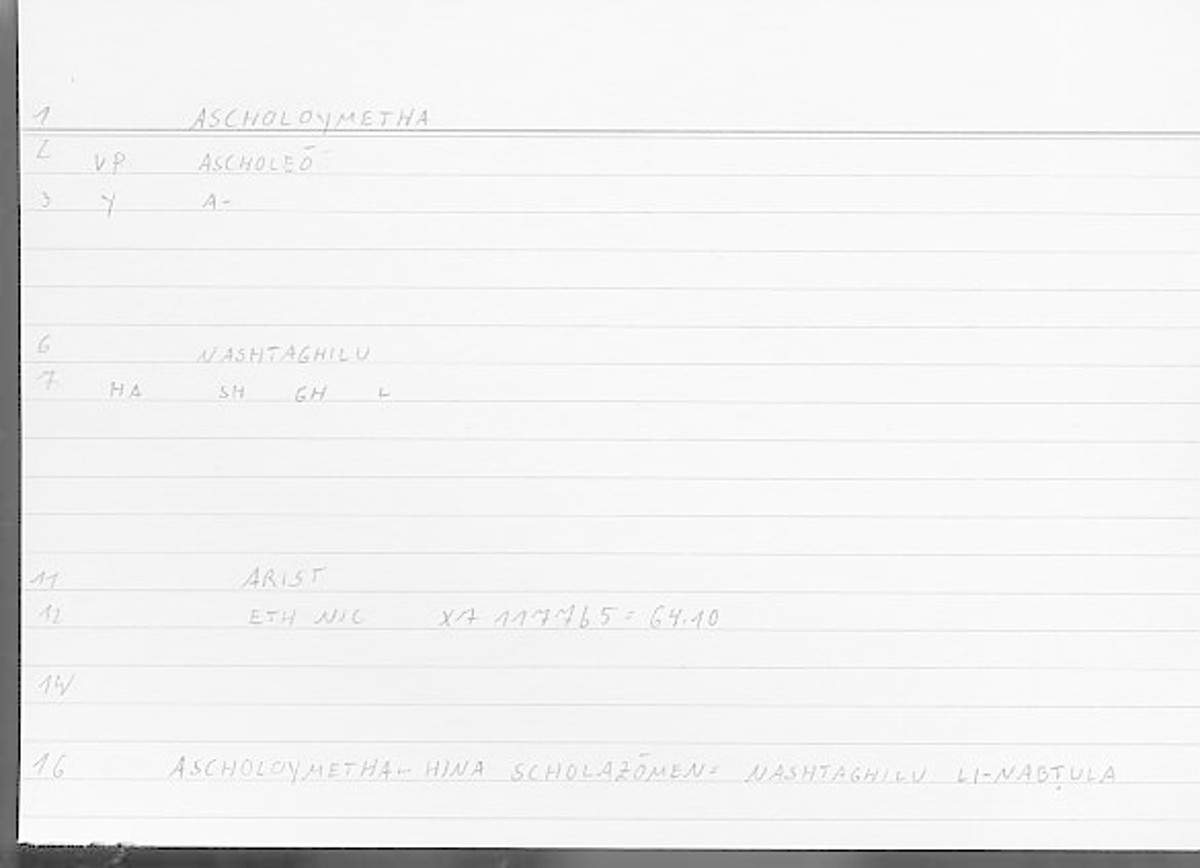 1 ASCHOLOYMETHA
2 VP ASCHOLEŌ
3 Y A-
6 NASHTAGHILU
7 HA SH GH L
11 ARIST
12 ETH NIC X7 1177b5 = 64.10
14
16 ASCHOLOYMETHA- HINA SCHOLAZŌMEN = NASHTAGHILU LI-NABṬULA